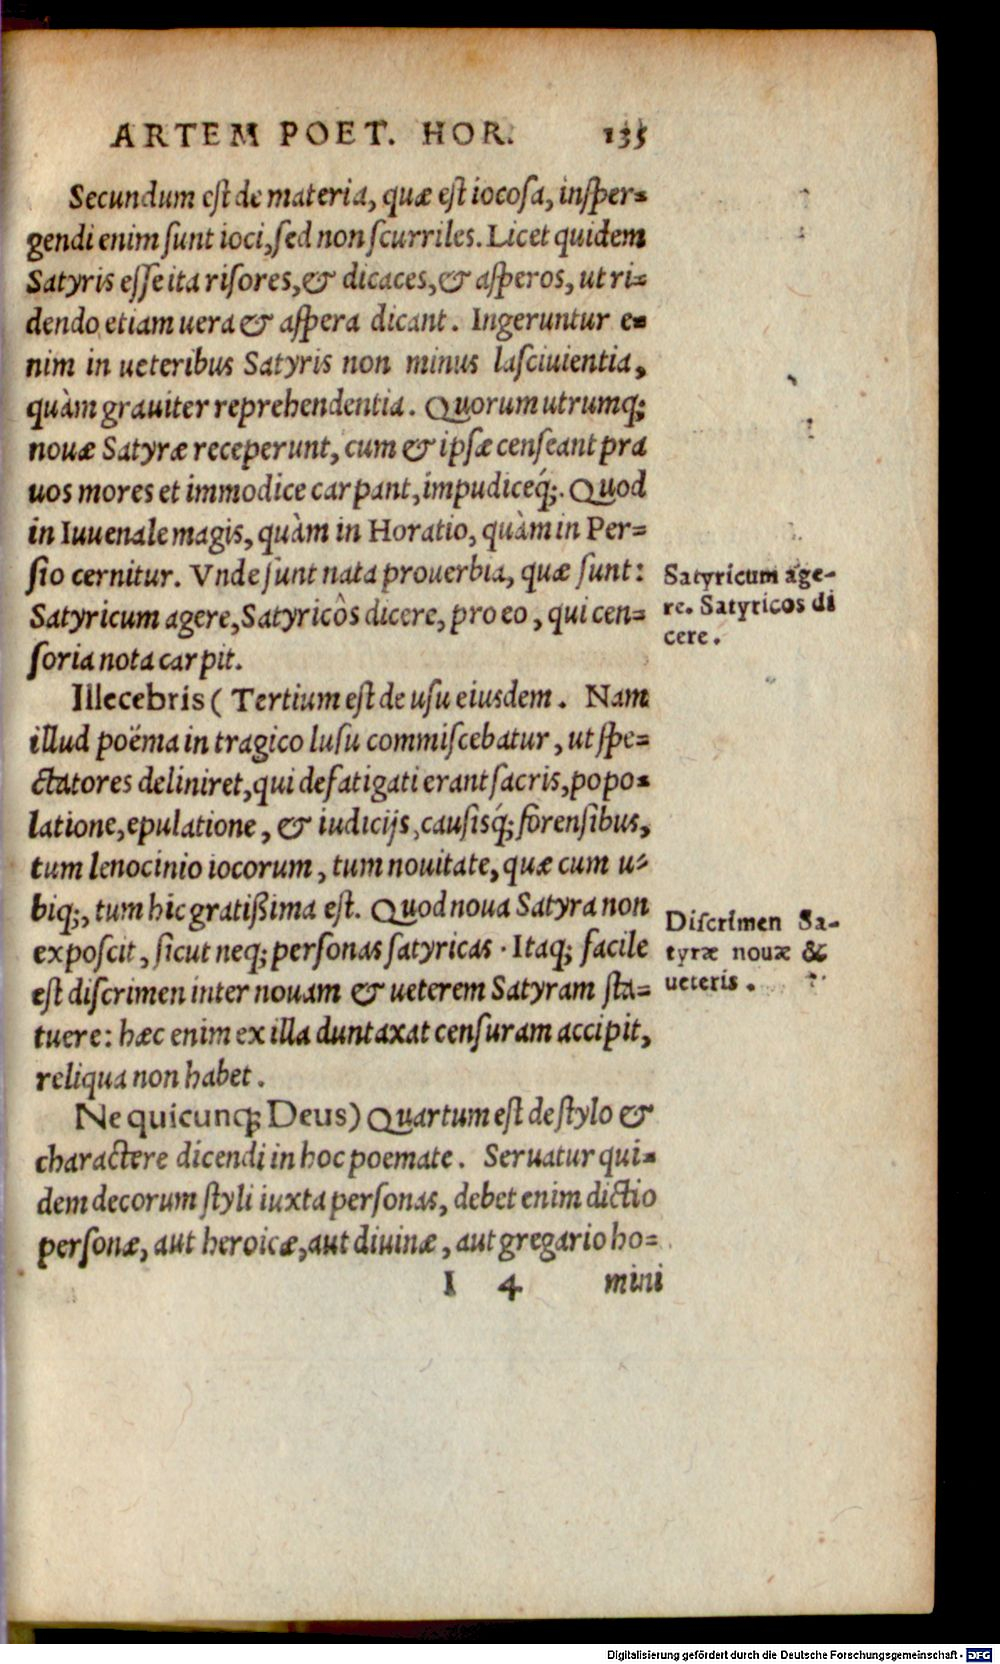 ARTEM POET. HOR. 135
Secundum est de materia, quæ est iocosa, insper=
gendi enim sunt ioci, sed non scurriles. Licet quidem
Satyris esse ita risores, & dicaces, & asperos, ut ri=
dendo etiam uera & aspera dicant. Ingeruntur e=
nim in ueteribus Satyris non minus lasciuientia,
quàm grauiter reprehendentia. Quorum utrumq;
nouæ Satyræ receperunt, cum & ipsæ censeant pra
uos mores et immodice carpant, impudiceq́;. Quod
in Iuuenale magis, quàm in Horatio, quàm in Per=
sio cernitur. Vnde sunt nata prouerbia, quæ sunt:
Satyricum agere, Satyricôs dicere, pro eo, qui cen=
soria nota carpit.
Satyricum age-
re. Satyricos di
cere.
Illecebris ( Tertium est de usu eiusdem. Nam
illud poëma in tragico lusu commiscebatur, ut spe=
ctatores deliniret, qui defatigati erant sacris, popo=
latione, epulatione, & iudicijs, causisq́; forensibus,
tum lenocinio iocorum, tum nouitate, quæ cum u=
biq;, tum hic gratißima est. Quod noua Satyra non
exposcit, sicut neq; personas satyricas. Itaq; facile
est discrimen inter nouam & ueterem Satyram sta=
tuere: hæc enim ex illa duntaxat censuram accipit,
reliqua non habet.
Discrimen Sa-
tyræ nouæ &
ueteris.
Ne quicunq; Deus) Quartum est de stylo &
charactere dicendi in hoc poemate. Seruatur qui=
dem decorum styli iuxta personas, debet enim dictio
personæ, aut heroicæ, aut diuinæ, aut gregario ho=
I 4 mini
Digitalisierung gefördert durch die Deutsche Forschungsgemeinschaft - DFG